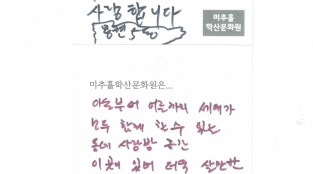 사랑합니다
용현5동
미추홀
학산문화원
미추홀학산문화원은...
아늘부터 어른까지 세대가
모두 함께 할 수 있는
동네 사랑방 같은
이곳에 있어 더욱 살만한